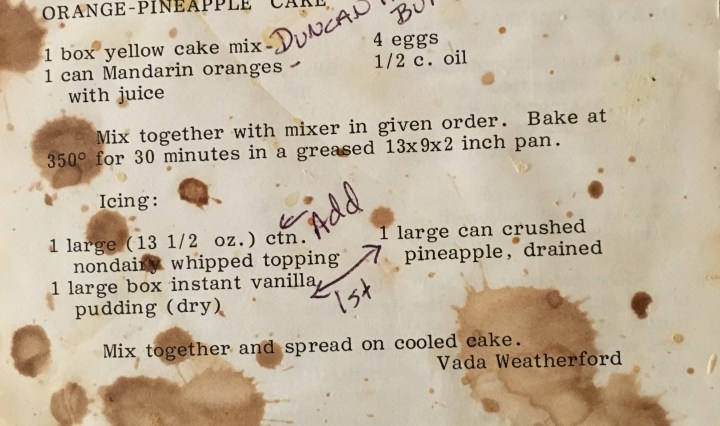 ORANGE-PINEAPPLE CAKE
1 box yellow cake mix - DUNCAN
1 can Mandarin oranges -
with juice
4 eggs
1/2 c. oil
Mix together with mixer in given order. Bake at
350° for 30 minutes in a greased 13x9x2 inch pan.
Icing:
Add
1 large (13 1/2 oz.) ctn.
nondairy whipped topping
1 large box instant vanilla
pudding (dry)
1st
1 large can crushed
pineapple, drained
Mix together and spread on cooled cake.
Vada Weatherford